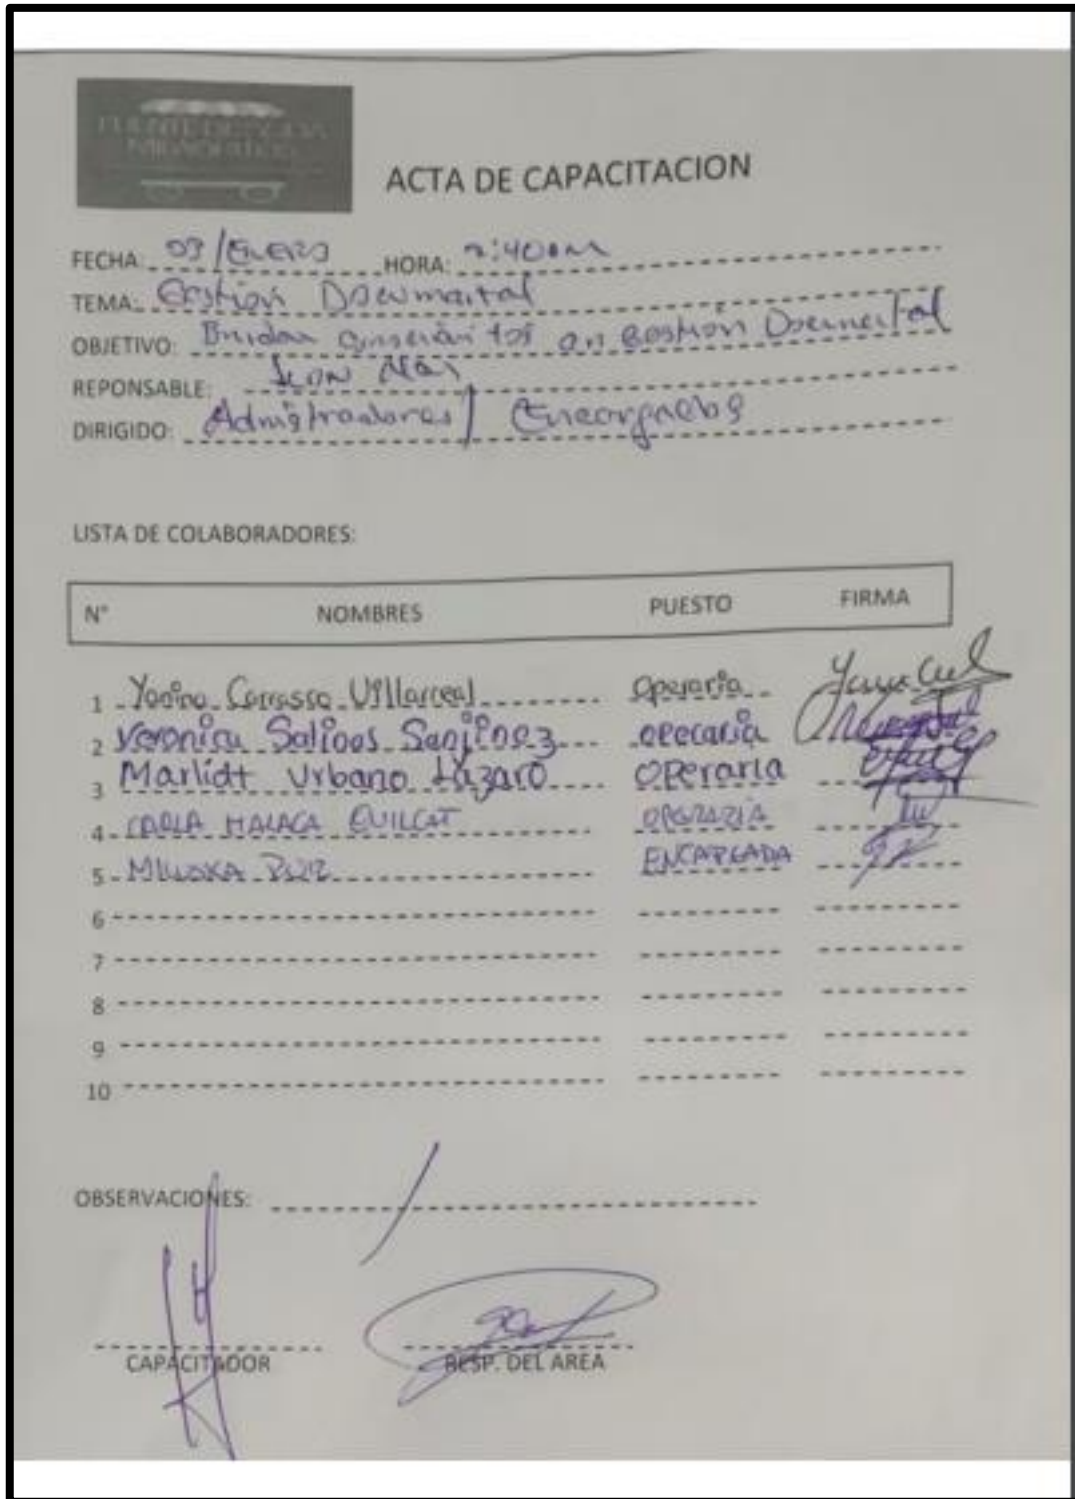 ACTA DE CAPACITACION
FECHA: 03/Enero HORA: :40am
TEMA: Gestion Documental
OBJETIVO: Brindar en Gestión Documental
REPONSABLE:
DIRIGIDO: Admistradores / Encargados
LISTA DE COLABORADORES:
N° NOMBRES PUESTO FIRMA
1 Yanina Carrasco Villarreal operaria
2 Veronica Salinas Sanjinez operaria
3 Marlidt Urbano Lázaro operaria
4 CARLA MALAGA QUILCAT OPERARIA
5 MILUSKA RUIZ ENCARGADA
6
7
8
9
10
OBSERVACIONES:
CAPACITADOR RESP. DEL AREA